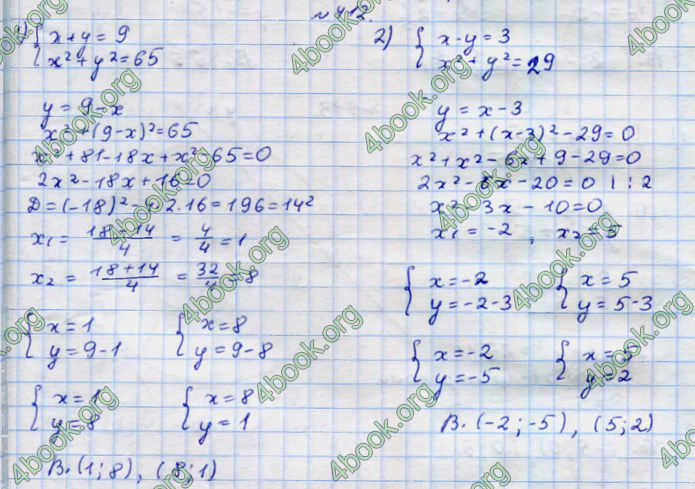 № 412.
1) { x+y=9
x²+y²=65
y=9-x
x²+(9-x)²=65
x²+81-18x+x²-65=0
2x²-18x+16=0
D=(-18)²-4·2·16=196=14²
x₁= (18-14)/4 = 4/4 =1
x₂= (18+14)/4 = 32/4 =8
{ x=1 { x=8
y=9-1 y=9-8
{ x=1 { x=8
y=8 y=1
В. (1;8), (8;1)
2) { x-y=3
x²+y²=29
y=x-3
x²+(x-3)²-29=0
x²+x²-6x+9-29=0
2x²-6x-20=0 | :2
x²-3x-10=0
x₁=-2, x₂=5
{ x=-2 { x=5
y=-2-3 y=5-3
{ x=-2 { x=5
y=-5 y=2
В. (-2;-5), (5;2)
4book.org